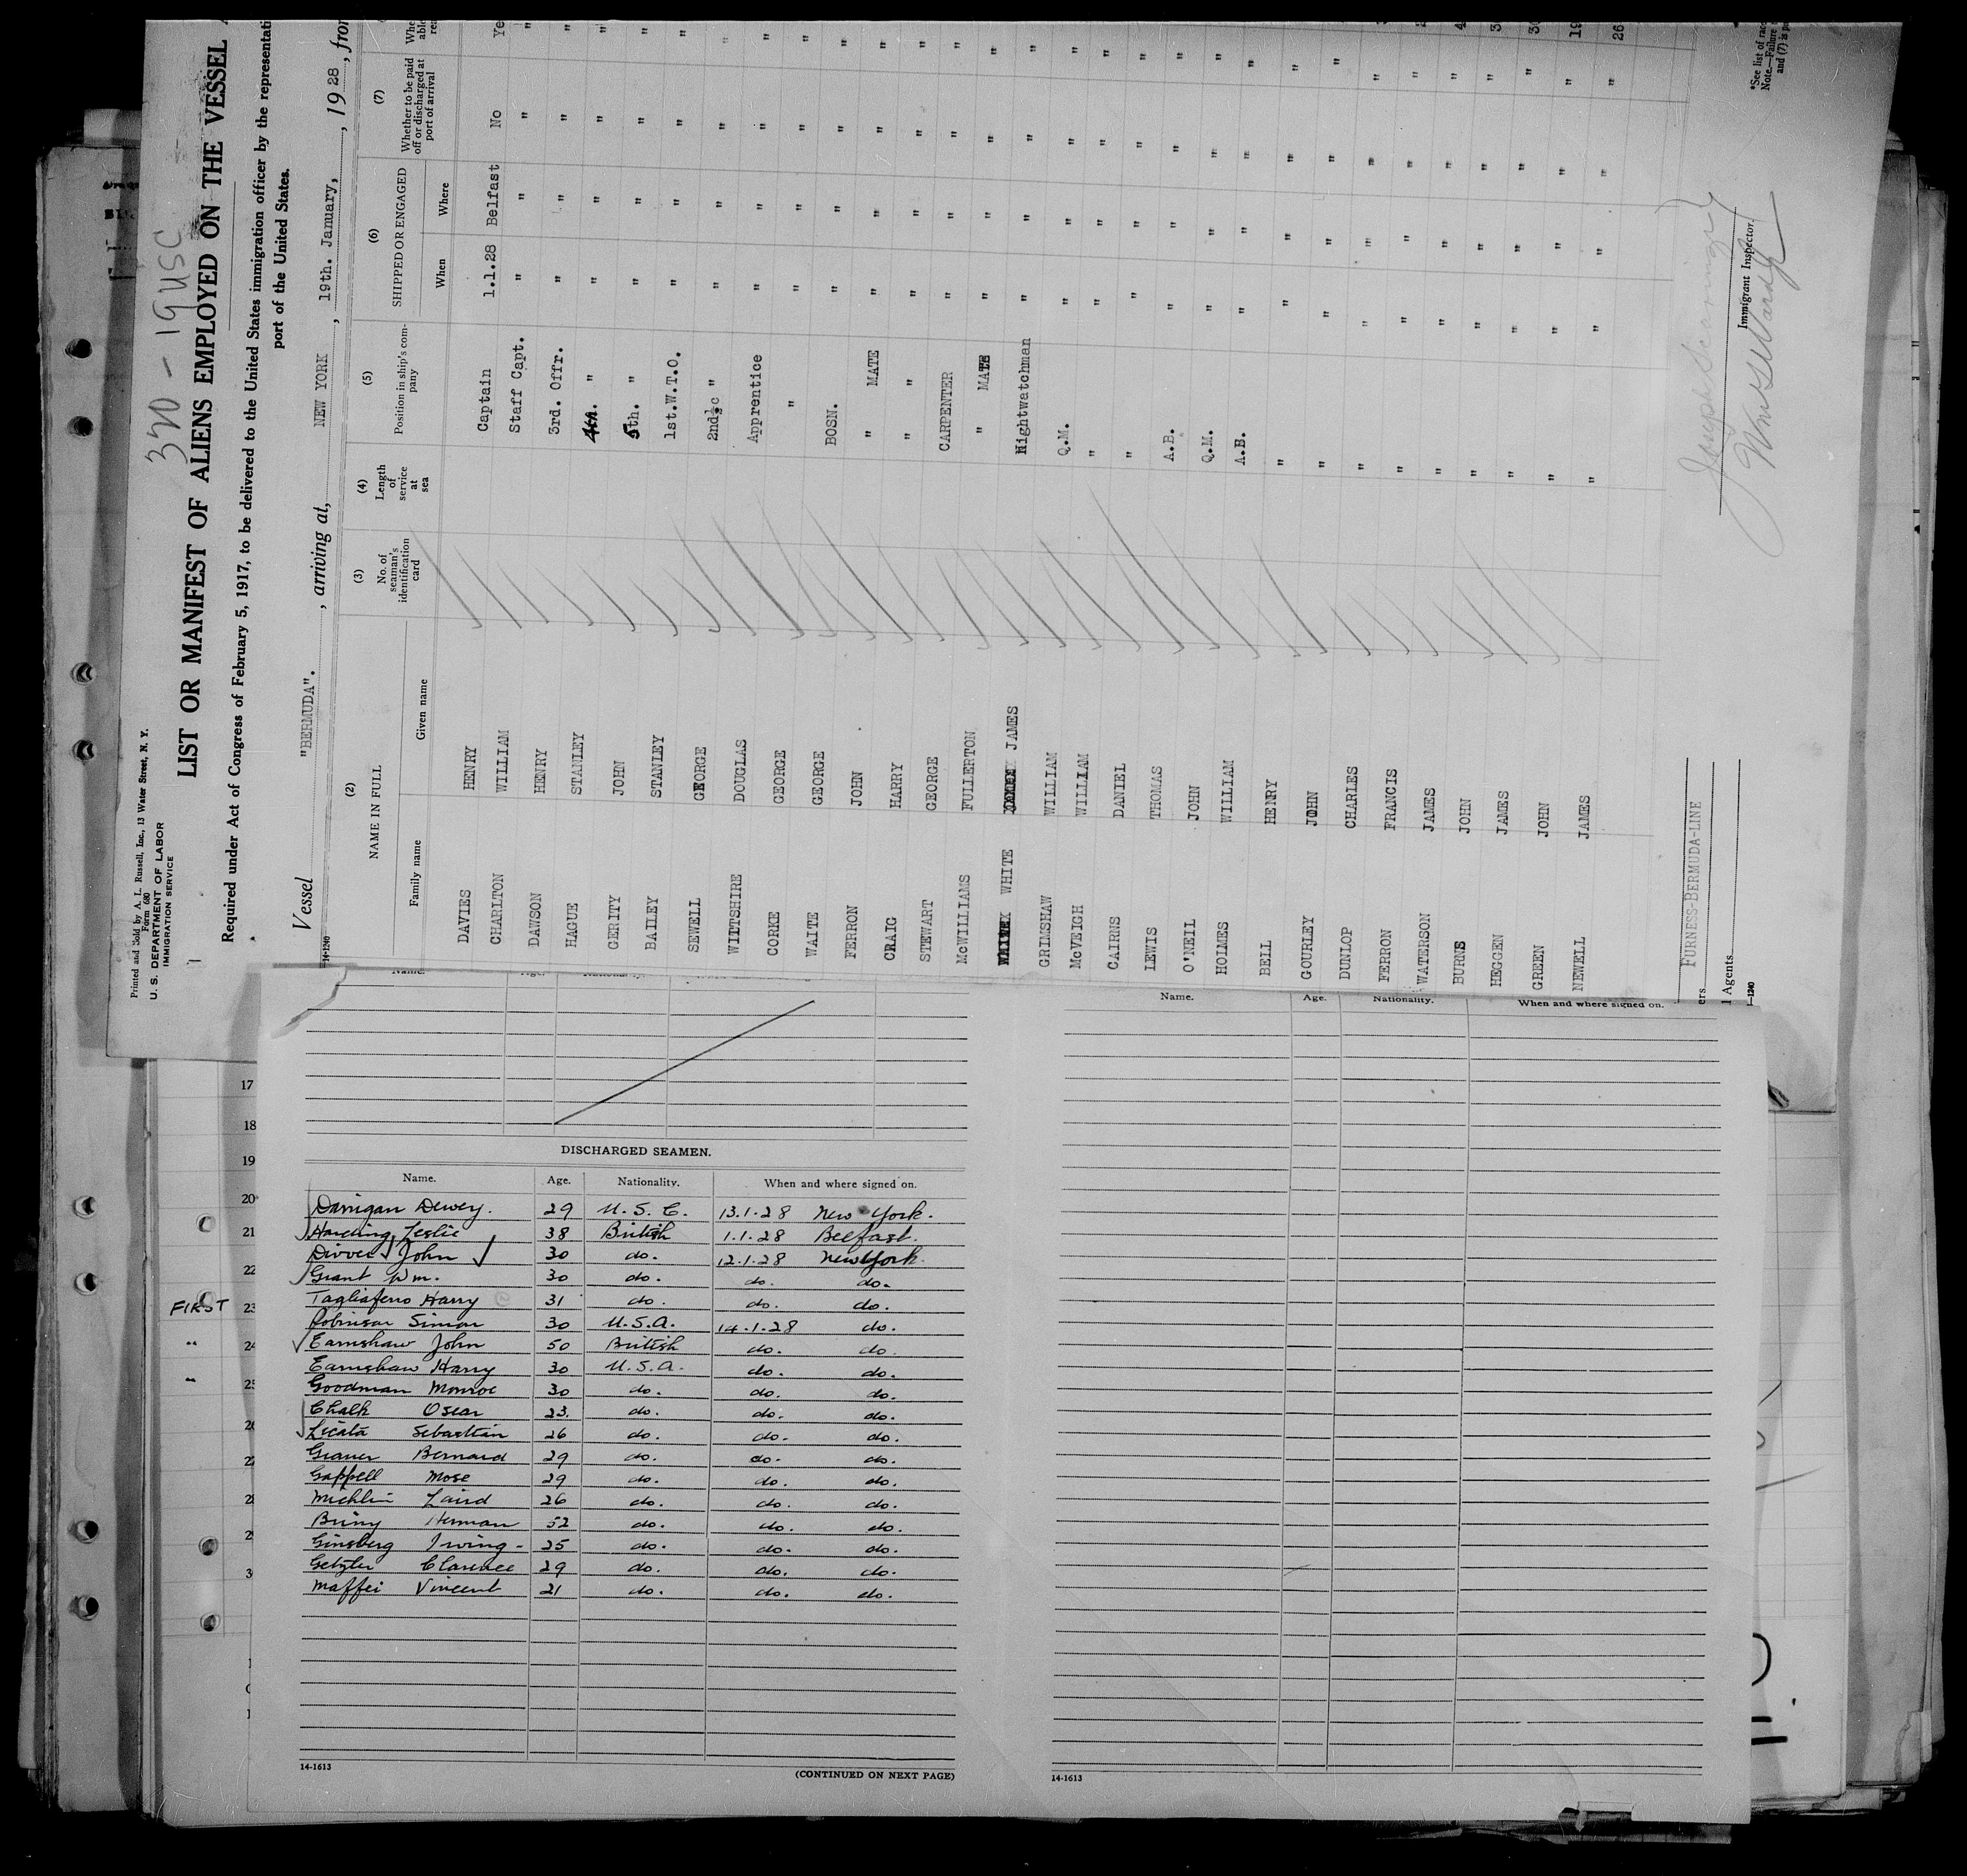 320 - 19 USC
Printed and Sold by A. L. Russell, Inc., 13 Water Street, N. Y.
Form 680
U. S. DEPARTMENT OF LABOR
IMMIGRATION SERVICE
LIST OR MANIFEST OF ALIENS EMPLOYED ON THE VESSEL
Required under Act of Congress of February 5, 1917, to be delivered to the United States immigration officer by the representati
port of the United States.
Vessel "BERMUDA". , arriving at, NEW YORK , 19th. January, , 1928 , from
14-1240
(2) (3) (4) (5) (6) (7)
NAME IN FULL No. of seaman's identification card Length of service at sea Position in ship's company SHIPPED OR ENGAGED Whether to be paid off or discharged at port of arrival
Family name Given name When Where
DAVIES HENRY Captain 1.1.28 Belfast No Yes
CHARLTON WILLIAM Staff Capt. " " " "
DAWSON HENRY 3rd. Offr. " " " "
HAGUE STANLEY 4th. " " " " "
GERITY JOHN 5th. " " " " "
BAILEY STANLEY 1st.W.T.O. " " " "
SEWELL GEORGE 2nd½c " " " " "
WILTSHIRE DOUGLAS Apprentice " " " "
CORKE GEORGE " " " " "
WAITE GEORGE BOSN. " " " "
FERRON JOHN " MATE " " " "
CRAIG HARRY " " " " "
STEWART GEORGE CARPENTER " " " "
McWILLIAMS FULLERTON " MATE " " " "
WHITE JAMES Nightwatchman " " " "
GRIMSHAW WILLIAM Q.M. " " " "
McVEIGH WILLIAM " " " " "
CAIRNS DANIEL " " " " "
LEWIS THOMAS A.B. " " " "
O'NEIL JOHN Q.M. " " " "
HOLMES WILLIAM A.B. " " " "
BELL HENRY " " " " "
GOURLEY JOHN " " " " "
DUNLOP CHARLES " " " " "
FERRON FRANCIS " " " " "
WATERSON JAMES " " " " "
BURNS JOHN " " " " "
HEGGEN JAMES " " " " "
GREEN JOHN " " " " "
NEWELL JAMES " " " " "
FURNESS-BERMUDA-LINE
Immigrant Inspector.
*See list of rac
Note.—Failure
and (7) is p
Agents
Name. Age. Nationality. When and where signed on.
17
18
19
20
21
22
23
24
25
26
FIRST
"
"
DISCHARGED SEAMEN.
Name. Age. Nationality. When and where signed on.
Dannigan Dewey. 29 U.S.C. 13.1.28 New York.
Harding Leslie 38 British 1.1.28 Belfast.
John 30 do. 12.1.28 New York.
Grant Wm. 30 do. do. do.
Tagliaferro Harry 31 do. do. do.
Robinson Simon 30 U.S.A. 14.1.28 do.
Earnshaw John 50 British do. do.
Earnshaw Harry 30 U.S.A. do. do.
Goodman Monroe 30 do. do. do.
Chalk Oscar 23. do. do. do.
Licata Sebastian 26 do. do. do.
Bernard 29 do. do. do.
Gappell Mose 29 do. do. do.
Michlin Laird 26 do. do. do.
Briny Herman 52 do. do. do.
Ginsberg Irving - 25 do. do. do.
Getzler Clarence 29 do. do. do.
Maffei Vincent 21 do. do. do.
14-1613
(CONTINUED ON NEXT PAGE)
14-1613